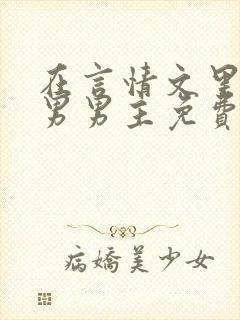 在言情文里
男男主免費
病嬌美少女